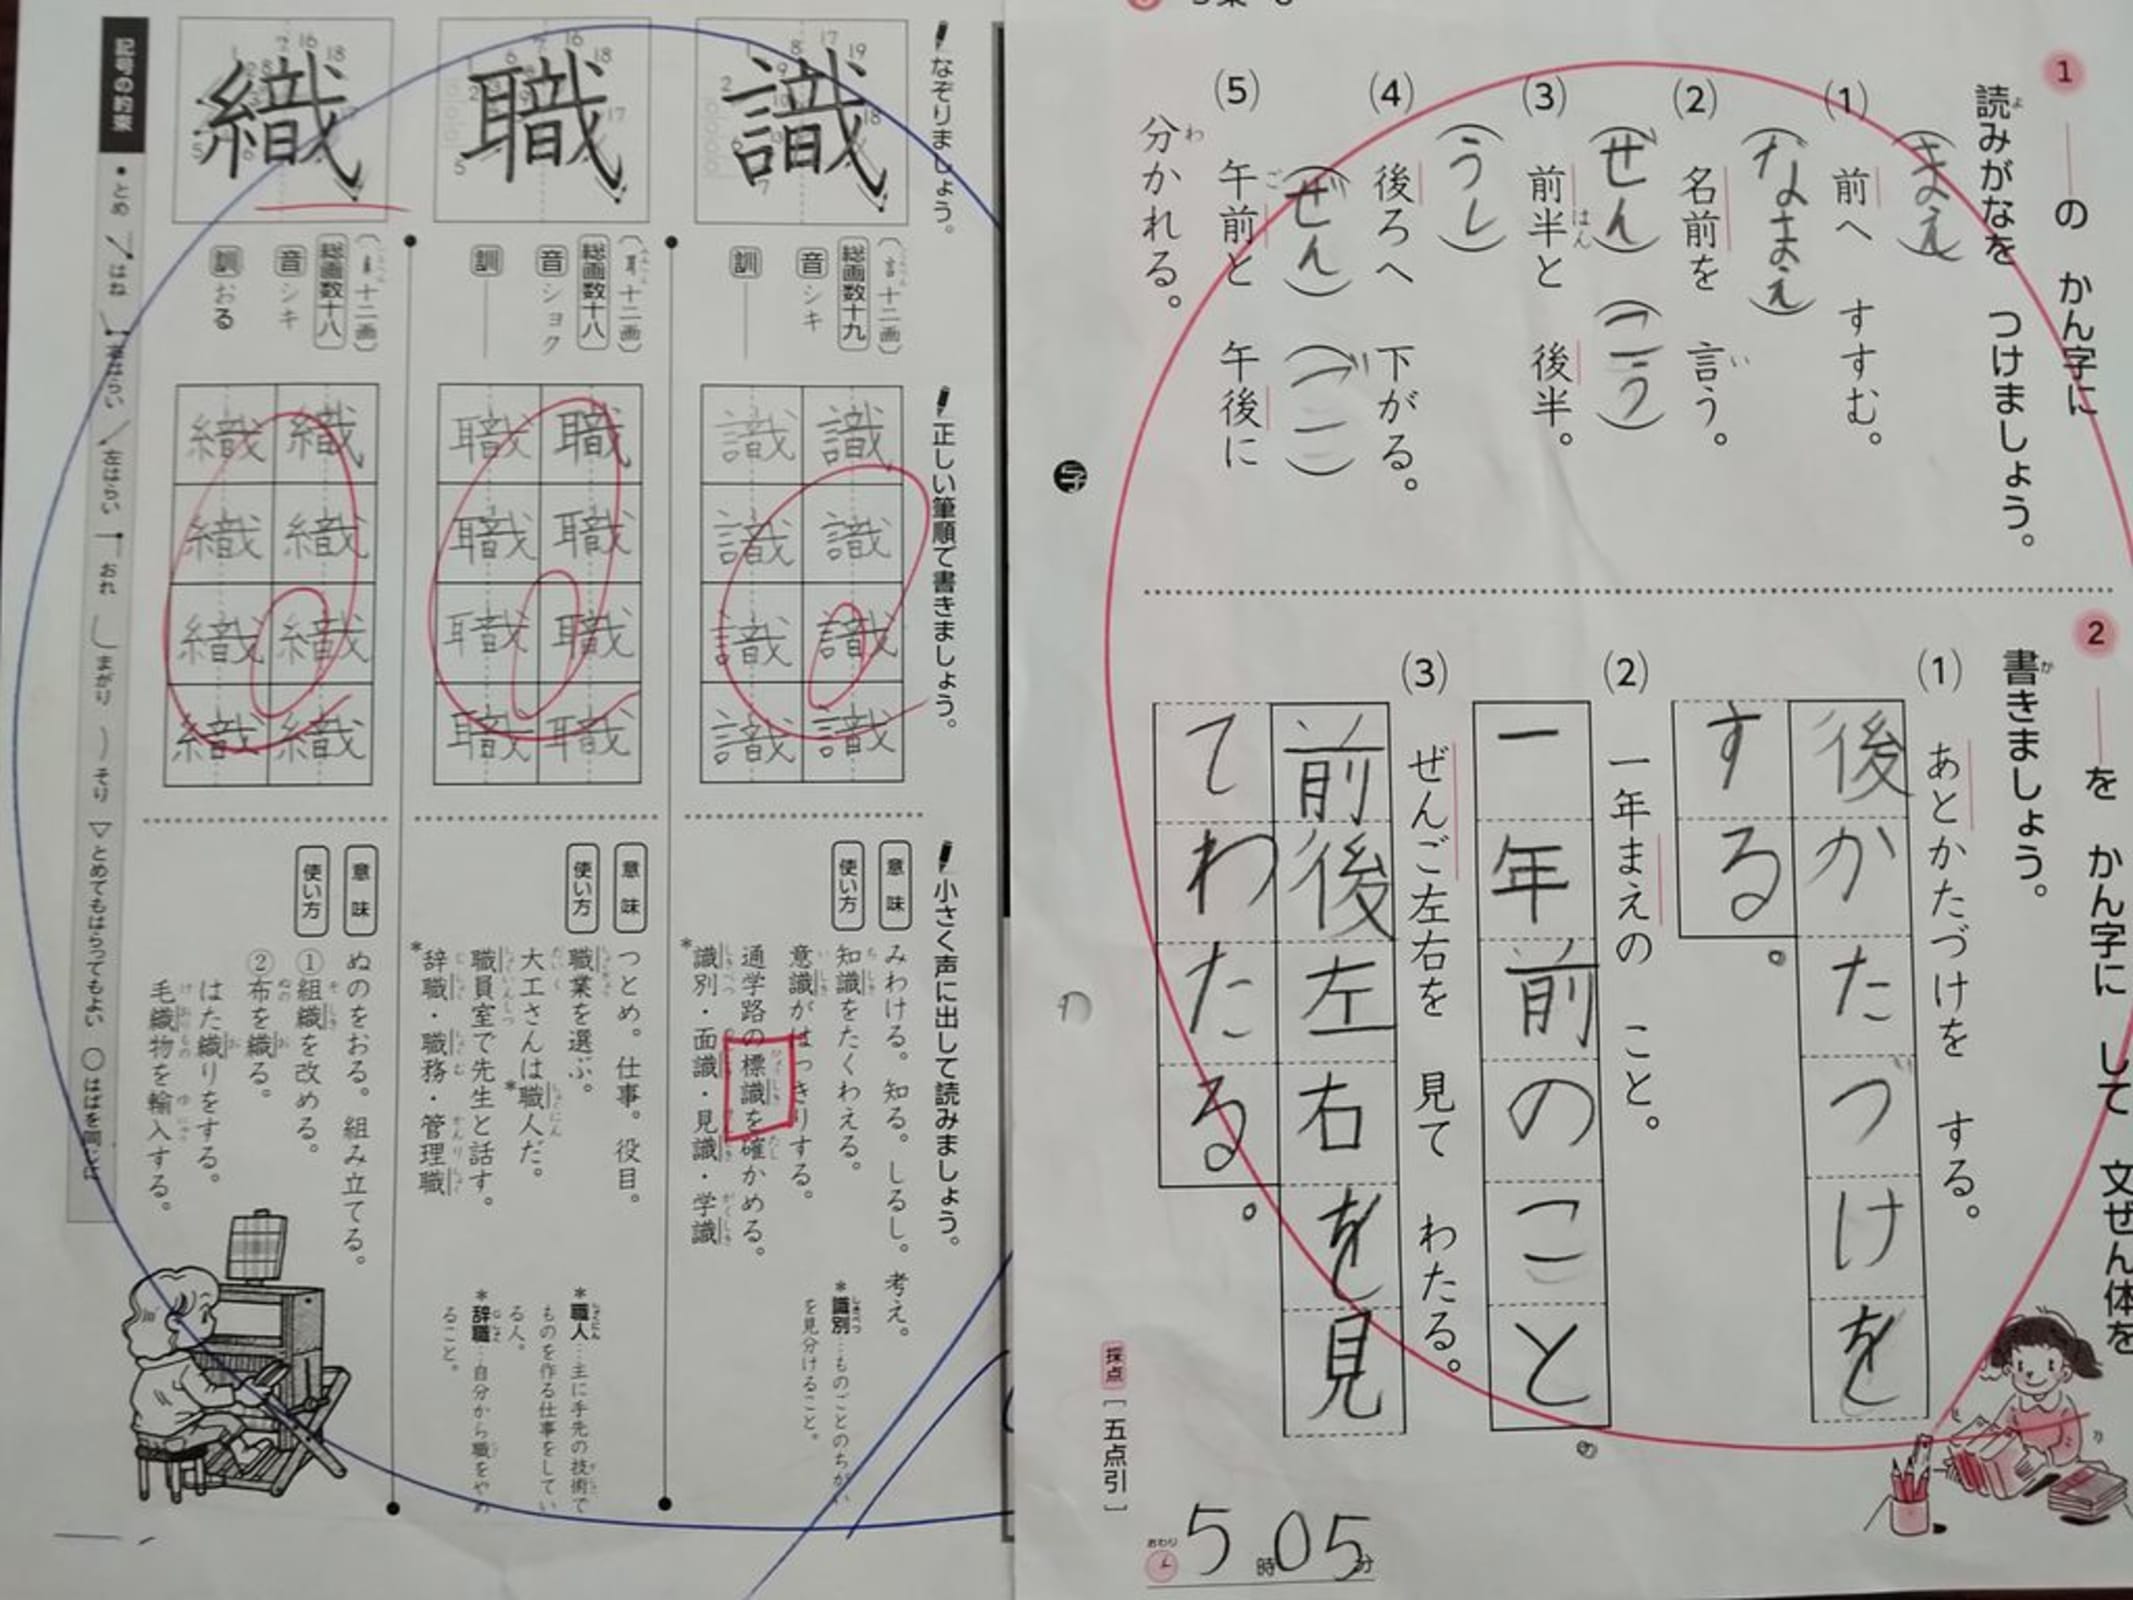 1
の かん字に
読みがなを つけましょう。
よ
(1)
前へ すすむ。
(まえ)
(2)
名前を 言う。
い
(なまえ)
(3)
前半と 後半。
はん
(せん) (こう)
(4)
後ろへ 下がる。
(うし)
(5)
午前と 午後に
ご
(ぜん) (ご)
分かれる。
わ
2
を かん字に して 文ぜん体を
書きましょう。
か
(1)
あとかたづけを する。
後かたづけを
する。
(2)
一年まえの こと。
一年前のこと。
(3)
ぜんご左右を 見て わたる。
前後左右を見
てわたる。
字
採点[五点引]
おわり
5時05分
なぞりましょう。
正しい筆順で書きましょう。
小さく声に出して読みましょう。
識
(言 十二画)
総画数十九
音 シキ
訓
識 識
識 識
識 識
識 識
意味
みわける。知る。しるし。考え。
使い方
知識をたくわえる。
意識がはっきりする。
通学路の標識を確かめる。
*識別・面識・見識・学識
*識別…ものごとのちがい
を見分けること。
職
(耳 十二画)
総画数十八
音 ショク
訓
職 職
職 職
職 職
職 職
意味
つとめ。仕事。役目。
使い方
職業を選ぶ。
大工さんは*職人だ。
職員室で先生と話す。
*辞職・職務・管理職
*職人…主に手先の技術で
ものを作る仕事をしてい
る人。
*辞職…自分から職をやめ
ること。
織
総画数十八
音 シキ
訓 おる
織 織
織 織
織 織
織 織
意味
ぬのをおる。組み立てる。
使い方
①組織を改める。
②布を織る。
はた織りをする。
毛織物を輸入する。
記号の約束
・とめ はね 右はらい 左はらい おれ まがり そり ▽とめてもはらってもよい ○はばを同じに